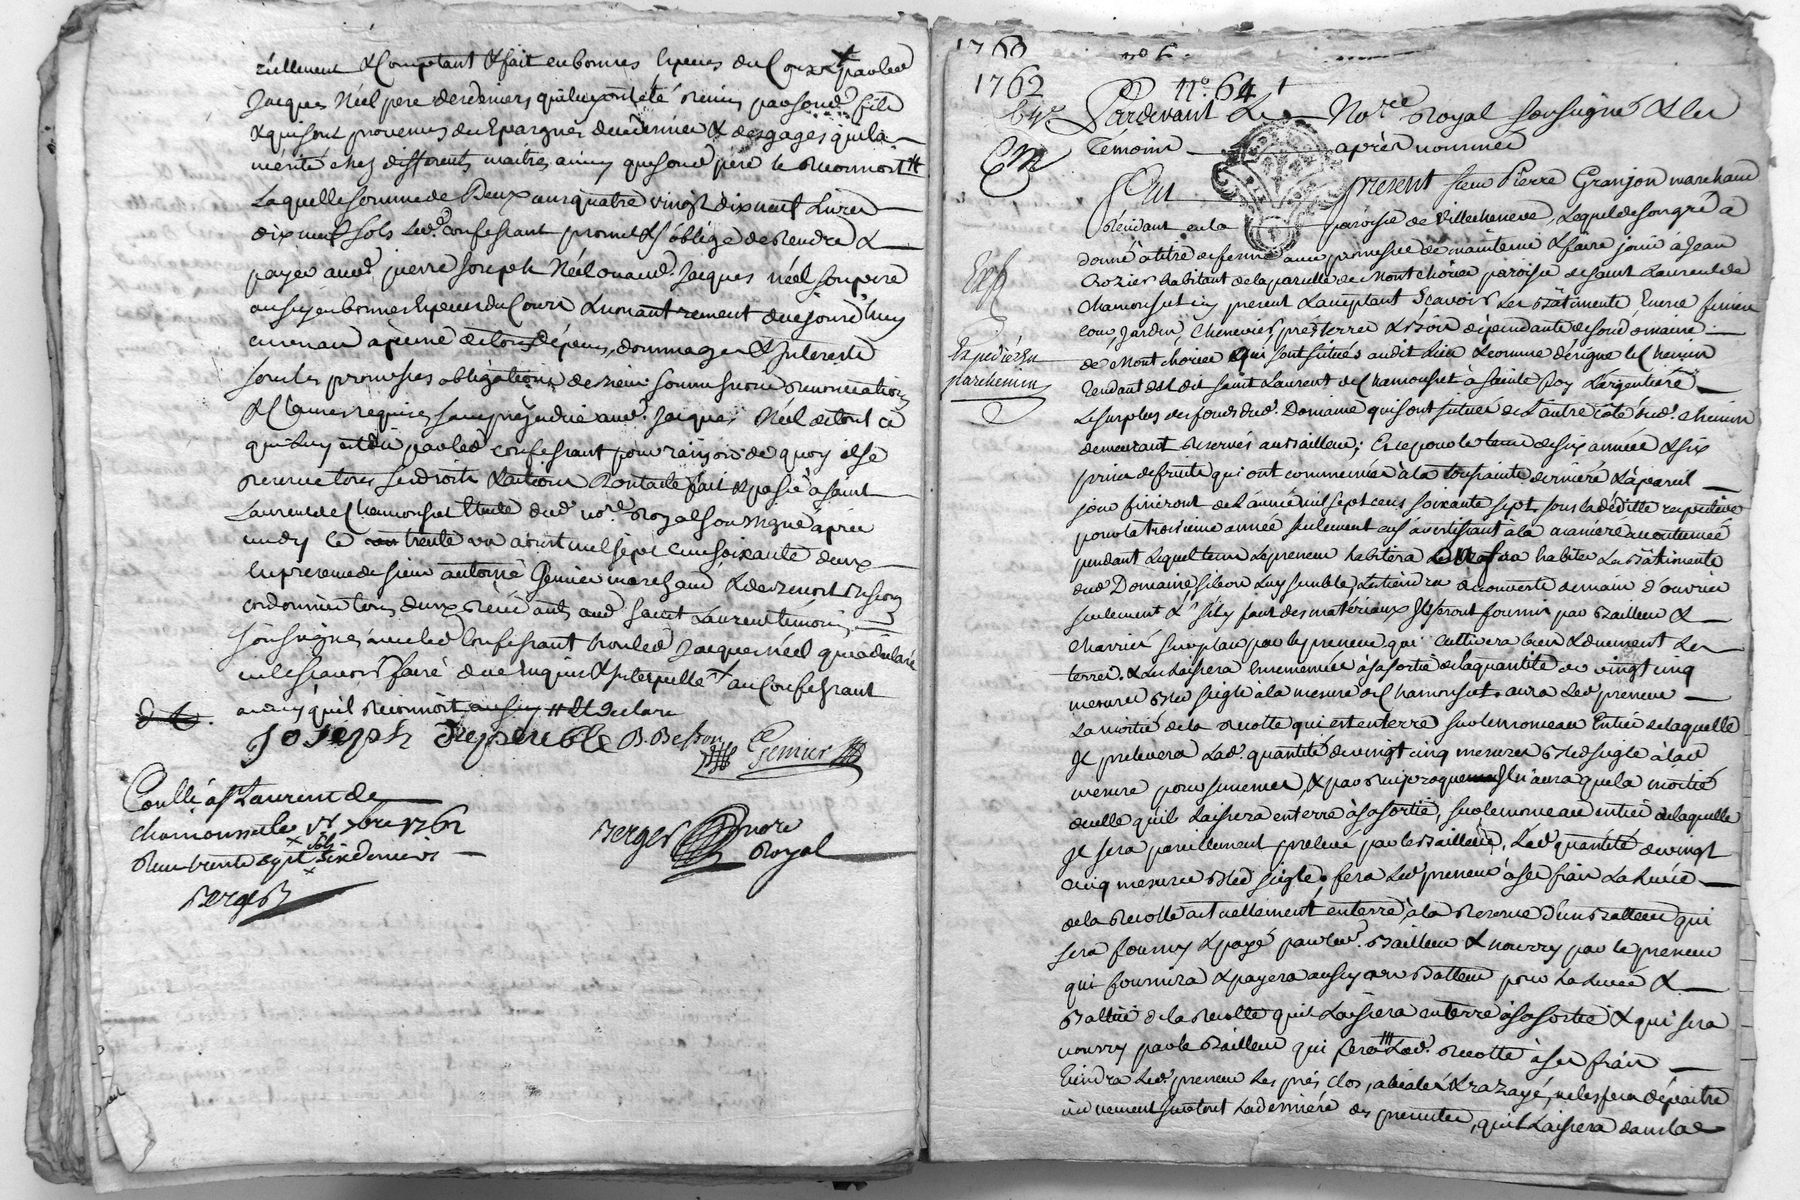 réellement & Comptant & fait en bonnes Especes du Cours # par led
Jacques Néel pere des deniers qui luy ont été remis par sond. fils
& qui sont provenus des Epargnes de ce dernier & des gages qu'il a
mérité chez differents maitres ainsy que sond. père le reconnoit #
Laquelle somme de Deux cens quatre vingt dix neuf Livres
dix neuf sols led. confessant promet & s'oblige de rendre &
payer aud. pierre Joseph Néel ou aud. Jacques néel son pere
aussy en bonnes Especes du Cours d'huy
en un an à peine de tous dépens, dommages & Interests
sous les promesses obligations de biens soumissions renonciations
& Clauses requises sans préjudice aud. Jacques Néel de tout ce
qui luy est dû par led confessant pour raison de quoy il se
reserve tous ses droits & actions Dont acte fait & passé à saint
Laurent de Chamousset Etude dud. no.re Royal soussigné après
midy le trente un aoust mil sept cens soixante deux
En presence de sieur antoine Gemier marchand & de benoit Besson
cordonnier tous deux résidants aud. saint Laurent témoins
soussignés avec led Confessant non led Jacques néel qui a déclaré
ne le scavoir faire de ce Enquis & Interpellé au Confessant
ainsy qu'il reconnoit aussy # Et declare
Joseph B. Besson Gemier
Conllé à St Laurent de
chamousset le 7bre 1762
Reçu trente sept sols six deniers
Berger
Berger nore
Royal
1760
no 6.
1762
no. 64
Pardevant Le No.re Royal soussigné & les
Temoins après nommés
Fut present sieur Pierre Granjon marchand
Résidant en la paroisse de Villecheneve, Lequel de son gré a
donné à titre de ferme avec promesse de maintenir & faire jouir à Jean
Crozier habitant de la parcelle de Montchorier paroisse de saint Laurent de
Chamousset icy present & acceptant Scavoir Les Bâtiments Ecurie fenieres
cour, Jardin, Chenevier, prés terres & bois dépendants de son domaine
de Montchorier qui sont situés audit Lieu & comme désigne le Chemin
Tendant dudit saint Laurent de Chamousset à sainte foy L'argentière
Expediée en
parchemin
Le surplus des fonds dud. Domaine qui sont situés de L'autre côté dud. chemin
demeurant reservés au Bailleur; Et ce pour le tems de six années & six
prises de fruits qui ont commencées à la toussaints derniere & à pareil
jour finiront de L'année mil sept cens soixante sept, sous la déditte respective
pour la troisieme année seulement en s'avertissant à la maniere accoutumée
pendant Lequel tems Le preneur habitera ou fera habiter Les Bâtiments
dud Domaine si bon Luy semble, Les tiendra à couverte de main d'ouvrier
seulement & s'il y faut des matériaux Ils seront fournis par Bailleur &
charriés sur place par le preneur qui Cultivera bien & duement Les
terres & Les Laissera Ensemencées à sa sortie de la quantité de vingt cinq
mesures Bled seigle à la mesure de Chamousset. aura Led preneur
La moitié de la recolte qui est en terre sur le monceau Entier de laquelle
Il prelevera Lad. quantité de vingt cinq mesures Bled seigle à lad
mesure pour semences, & par reciproque n'aura que la moitié
de celle qu'il Laissera en terre à sa sortie, sur le monceau entier de laquelle
Il sera pareillement prelevé par le Bailleur, Lad quantité de vingt
cinq mesures Bled seigle, fera Led preneur à ses frais La Levée
de la recolte actuellement en terre à la Reserve d'un Batteur qui
sera fourny & payé par led. Bailleur & nourry par le preneur
qui fournira & payera aussy un Batteur pour La Levée &
Battue de la recolte qu'il Laissera en terre à sa sortie & qui sera
nourry par le Bailleur qui fera Lad. recolte à ses frais
Tiendra Led. preneur Les prés clos, abialés & razayé, ne les fera dépaitre
surtout La derniere des presentes, qu'il Laissera dans led